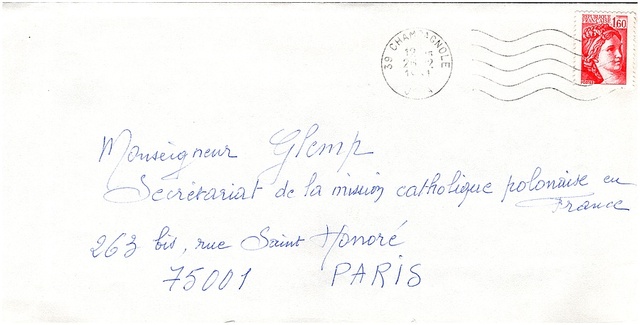 39 CHAMPAGNOLE
RÉPUBLIQUE FRANÇAISE
1,60
Monseigneur Glemp
Secrétariat de la mission catholique polonaise en
France
263 bis, rue Saint Honoré
75001 PARIS